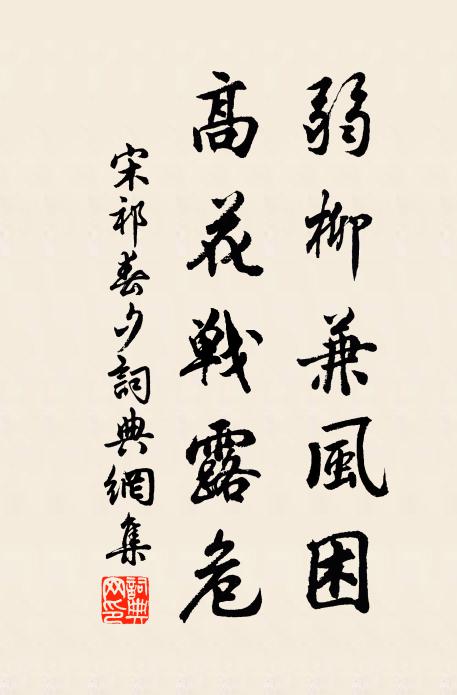 弱柳兼風困
高花戦露危
宋祁春夕詞典網集
詞典网印